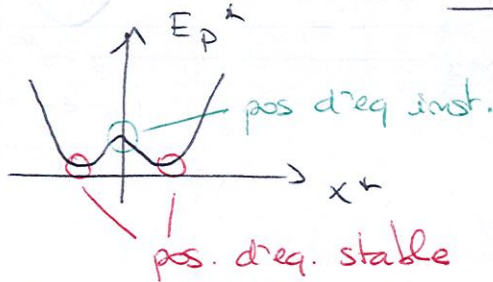 Ep*
pos d'eq inst.
x*
pos. d'eq. stable